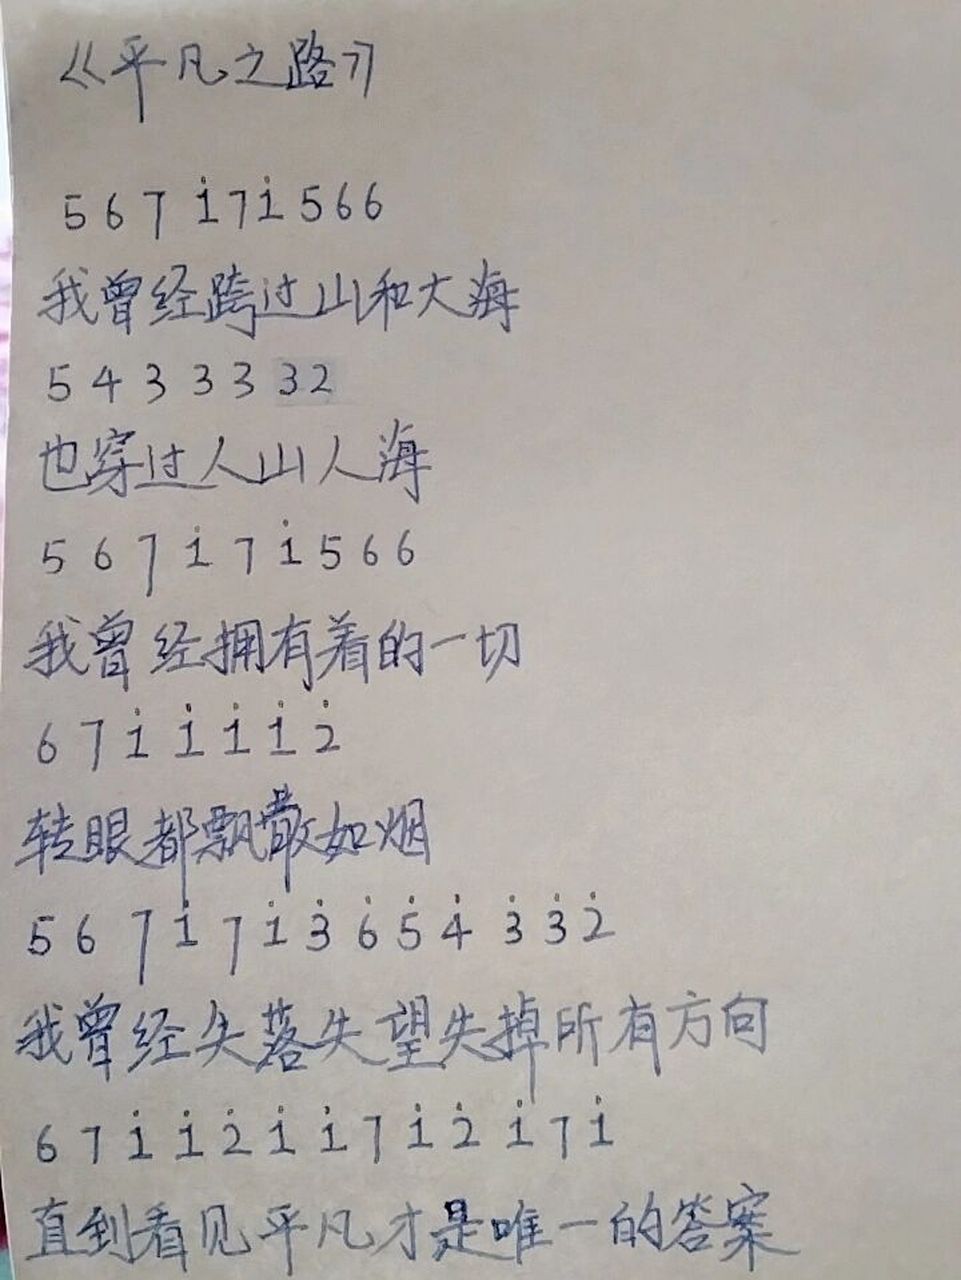 《平凡之路》
5 6 7 i 7 i 5 6 6
我曾经跨过山和大海
5 4 3 3 3 3 2
也穿过人山人海
5 6 7 i 7 i 5 6 6
我曾经拥有着的一切
6 7 i i i i 2̇
转眼都飘散如烟
5 6 7 i 7 i 3̇ 6̇ 5̇ 4̇ 3̇ 3̇ 2̇
我曾经失落失望失掉所有方向
6 7 i i 2̇ i i 7 i 2̇ i 7 i
直到看见平凡才是唯一的答案